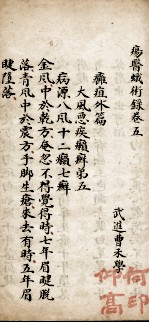 瘍醫蛾術錄卷五
武進曹禾學
癰疽外篇
大風惡疾癩癬第五
病源八風十二癩七癬
金風中於乾方奄忽不得覺得時七年眉睫脫
落青風中於震方手腳生瘡來去有時五年眉
睫墮落
何印